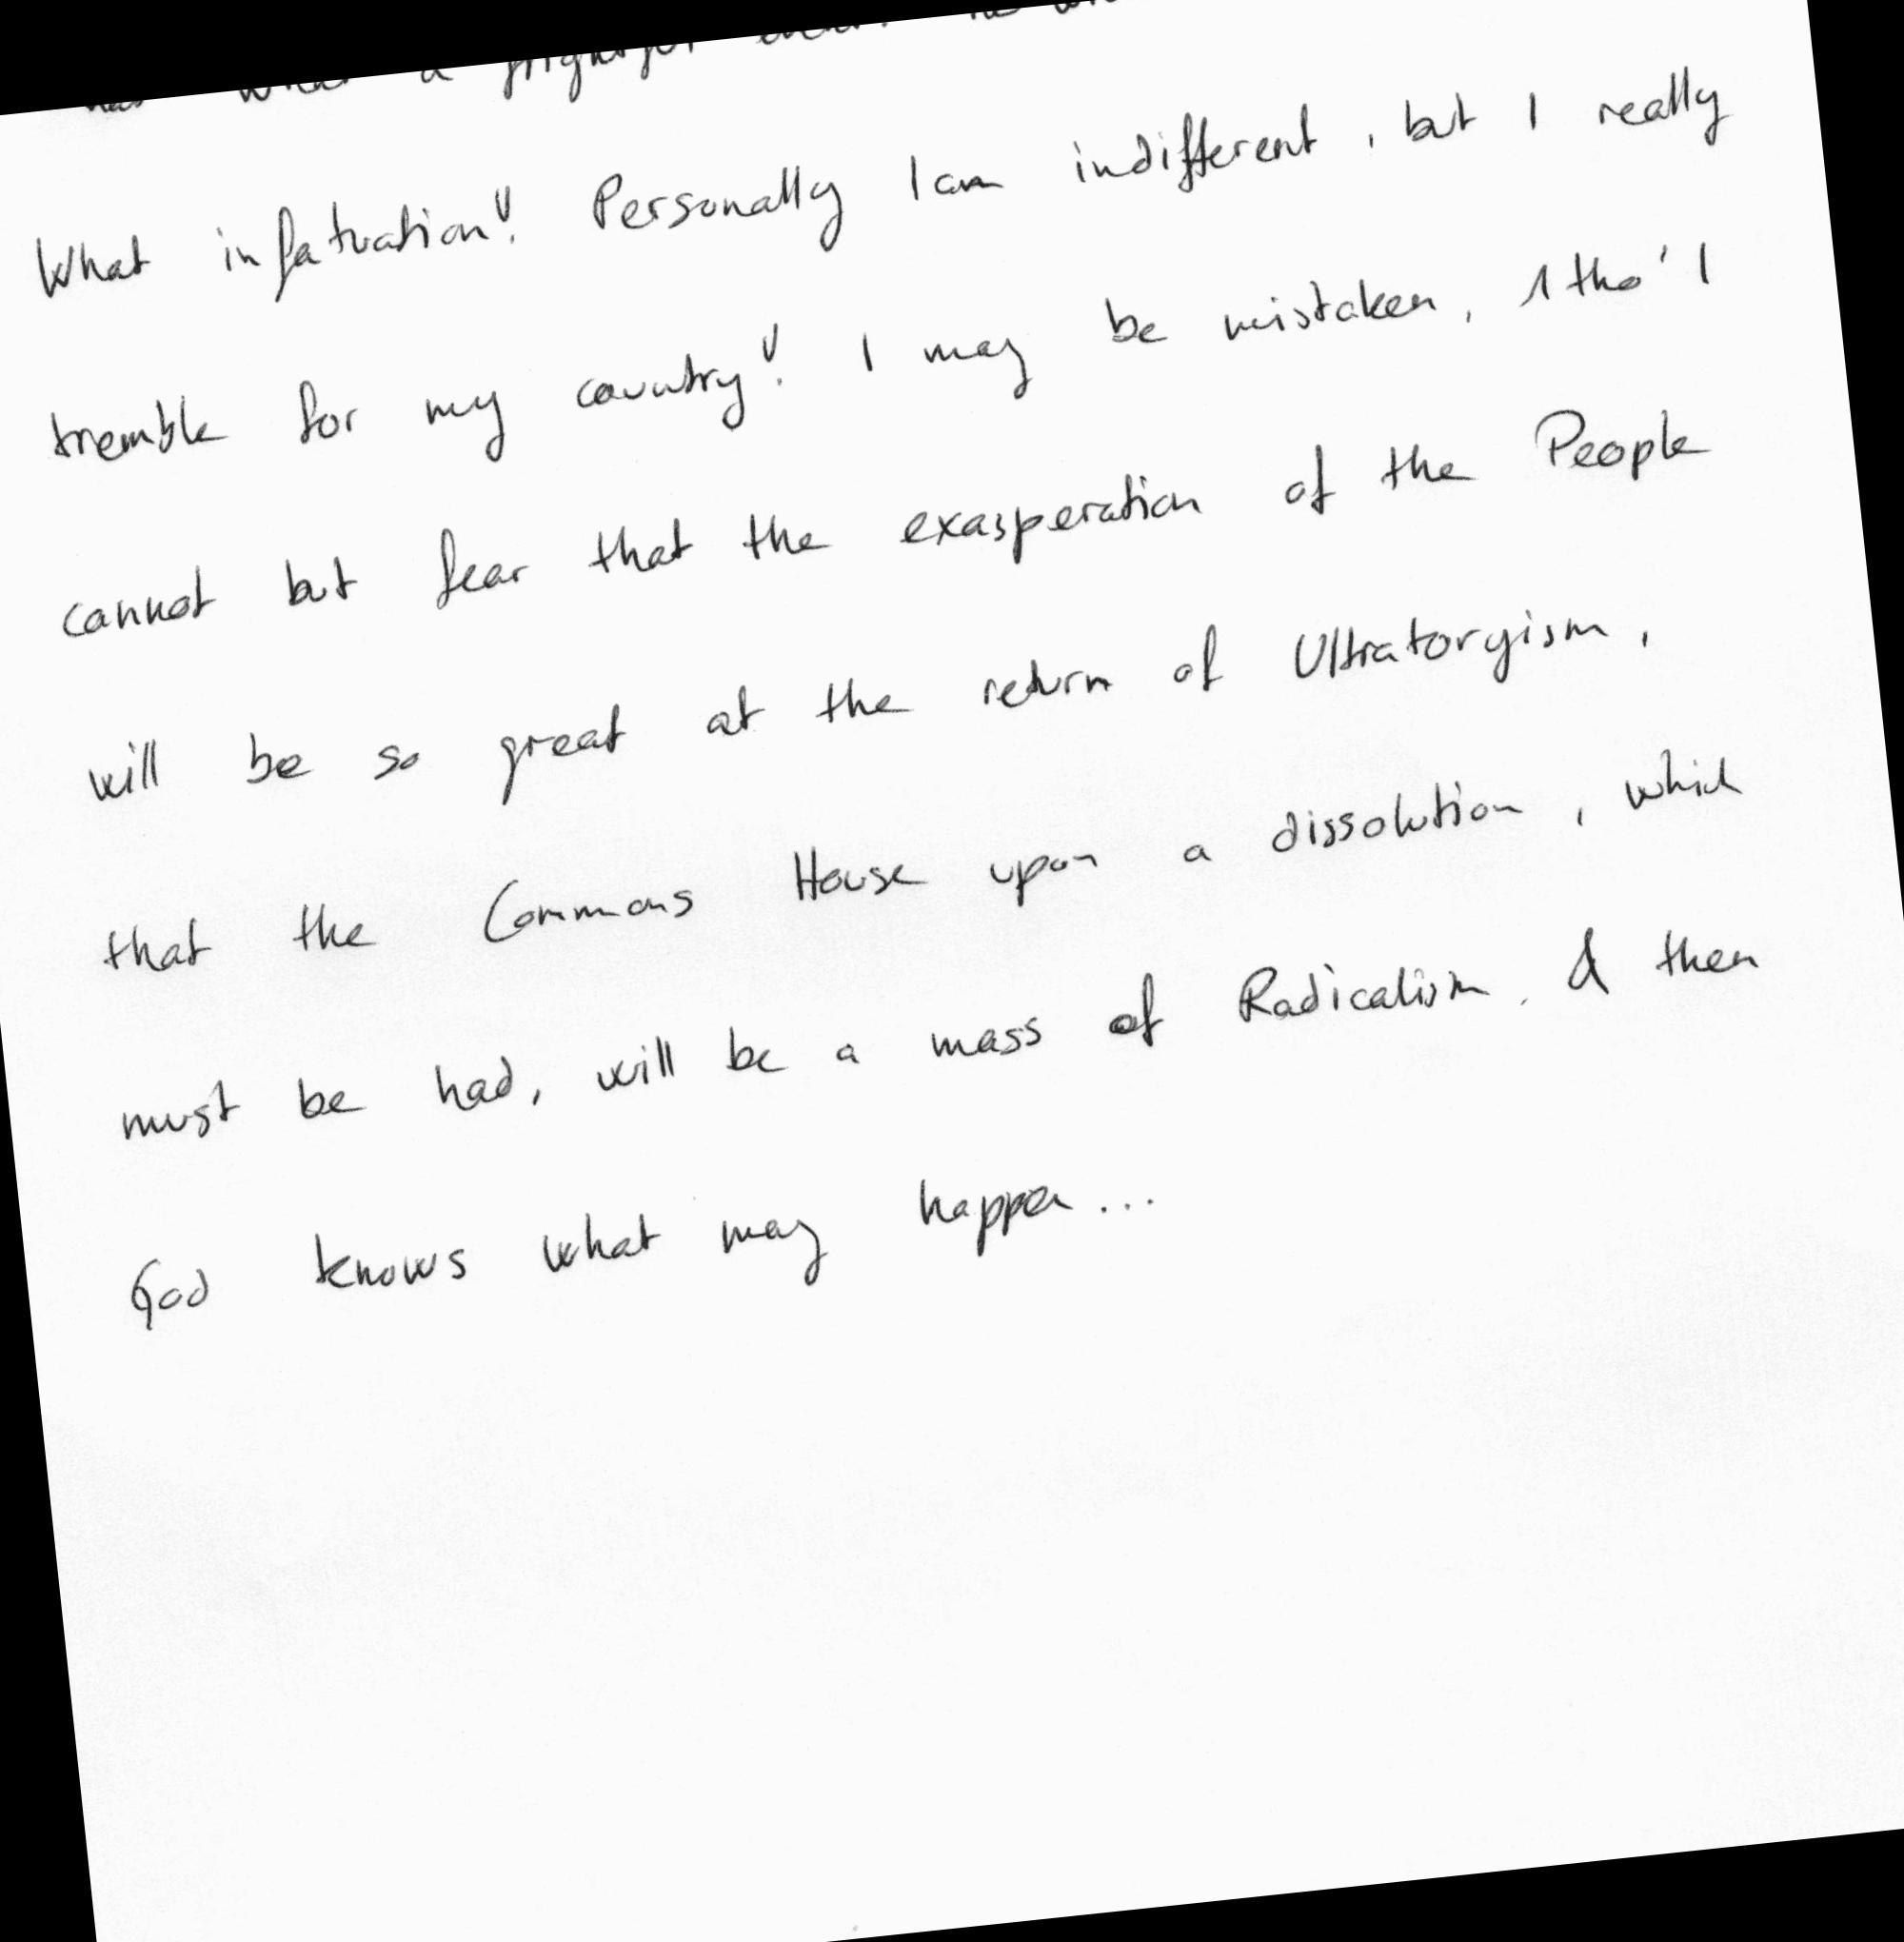 a
What infatuation! Personally I am indifferent, but I really
tremble for my country! I may be mistaken, tho' I
cannot but fear that the exasperation of the People
will be so great at the return of Ultratoryism,
that the Commons House upon a dissolution, which
must be had, will be a mass of Radicalism, & then
God knows what may happen...